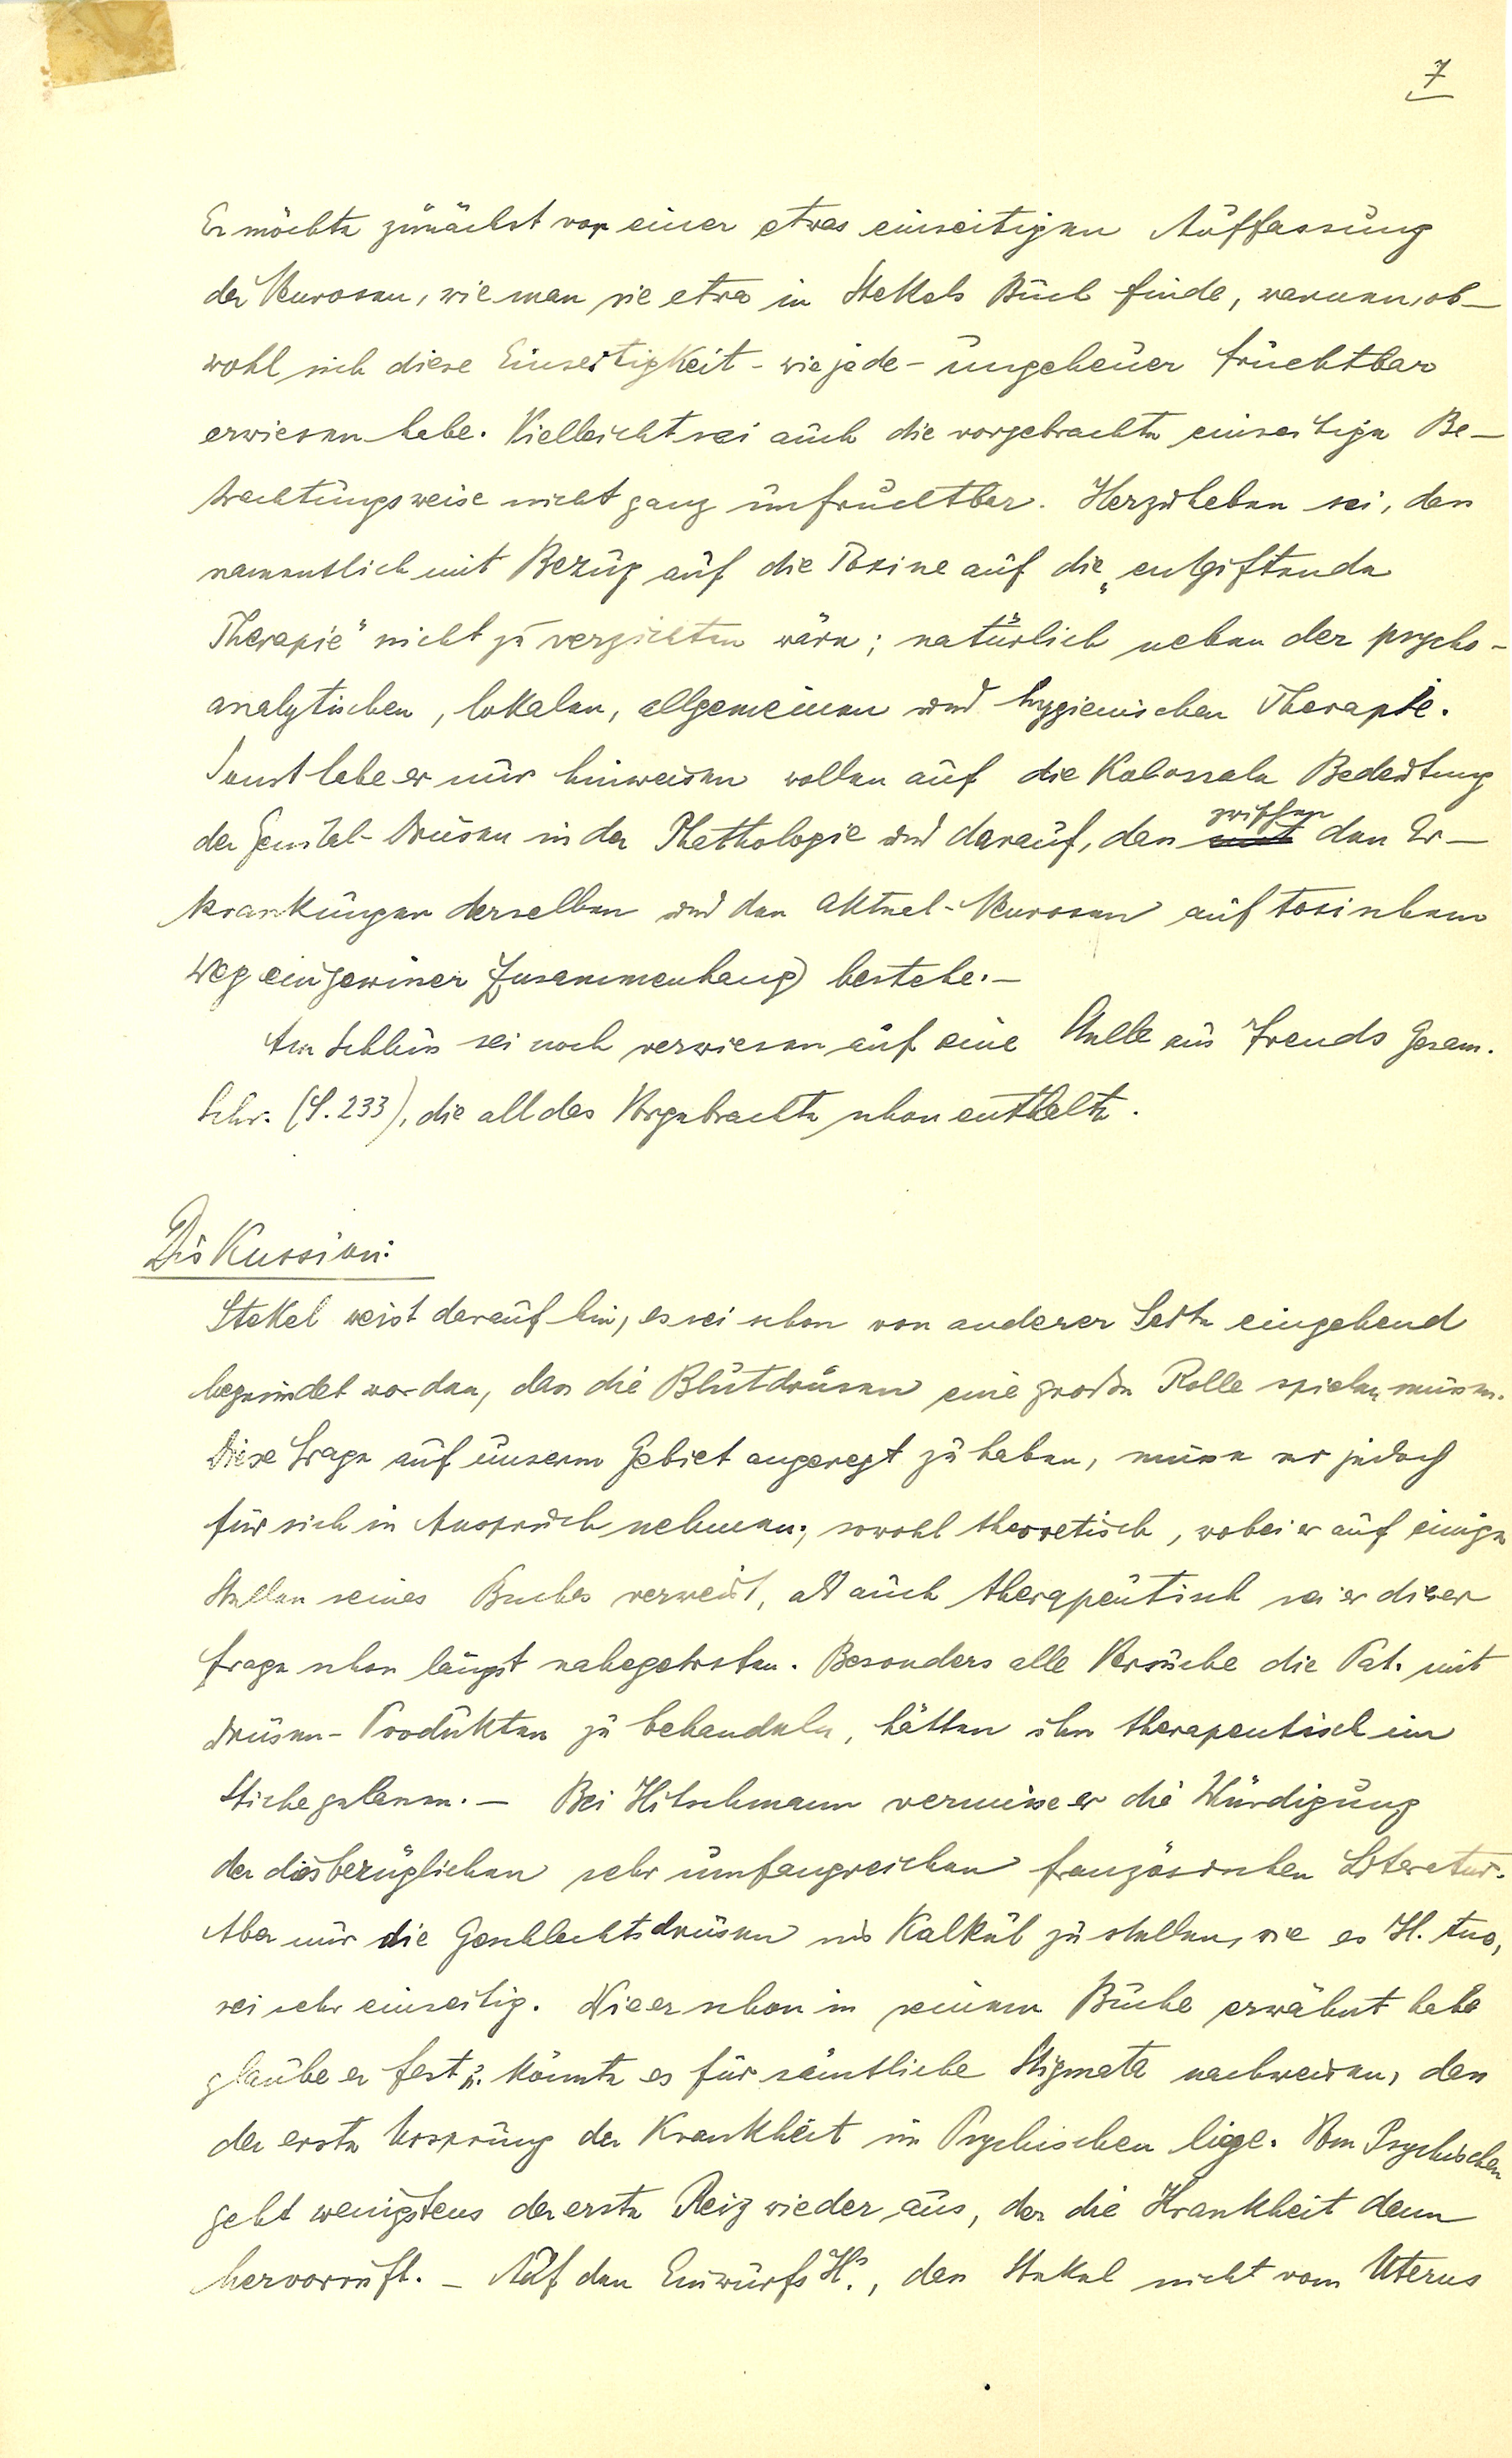 7
Er möchte zunächst vor einer etwas einseitigen Auffassung
der Neurosen, wie man sie etwa in Stekels Buch finde, warnen, ob-
wohl sich diese Einseitigkeit - wie jede - ungeheuer fruchtbar
erwiesen habe. Vielleicht sei auch die vorgebrachte einseitige Be-
trachtungsweise nicht ganz unfruchtbar. Herzuheben sei, dass
namentlich mit Bezug auf die Toxine auf die „entgiftende
Therapie" nicht zu verzichten wäre; natürlich neben der psycho-
analytischen, lokalen, allgemeinen und hygienischen Therapie.
Sonst habe er nur hinweisen wollen auf die Kolossale Bedeutung
der Genital-Drüsen in der Pathologie und darauf, dass zwischen den Er-
krankungen derselben und den Aktuel-Neurosen auf toxischem
Weg ein gewisser Zusammenhang bestehe.-
Am Schluss sei noch verwiesen auf eine Stelle aus Freuds Gesam.
Schr. (S. 233), die all das Vorgebrachte schon enthalte.
Diskussion:
Stekel weist darauf hin, es sei schon von anderer Seite eingehend
begründet worden, dass die Blutdrüsen eine große Rolle spielen müssen.
Diese Frage auf unserm Gebiet angeregt zu haben, müsse er jedoch
für sich in Anspruch nehmen; sowohl theoretisch, wobei er auf einige
Stellen seines Buches verweist, als auch therapeutisch sei er dieser
Frage schon längst nahegetreten. Besonders alle Versuche die Pat. mit
Drüsen-Produkten zu behandeln, hätten ihn therapeutisch im
Stiche gelassen. - Bei Hitschmann vermisse er die Würdigung
der diesbezüglichen sehr umfangreichen französischen Literatur.
Aber nur die Geschlechtsdrüsen ins Kalkül zu stellen, wie es H. tue,
sei sehr einseitig. Wie er schon in seinem Buche erwähnt habe
glaube er fest u. könnte es für sämtliche Stigmata nachweisen, dass
der erste Ursprung der Krankheit im Psychischen liege. Vom Psychischen
geht wenigstens der erste Reiz wieder aus, der die Krankheit dann
hervorruft. - Auf den Einwurfs H's., dass Stekel nicht vom Uterus